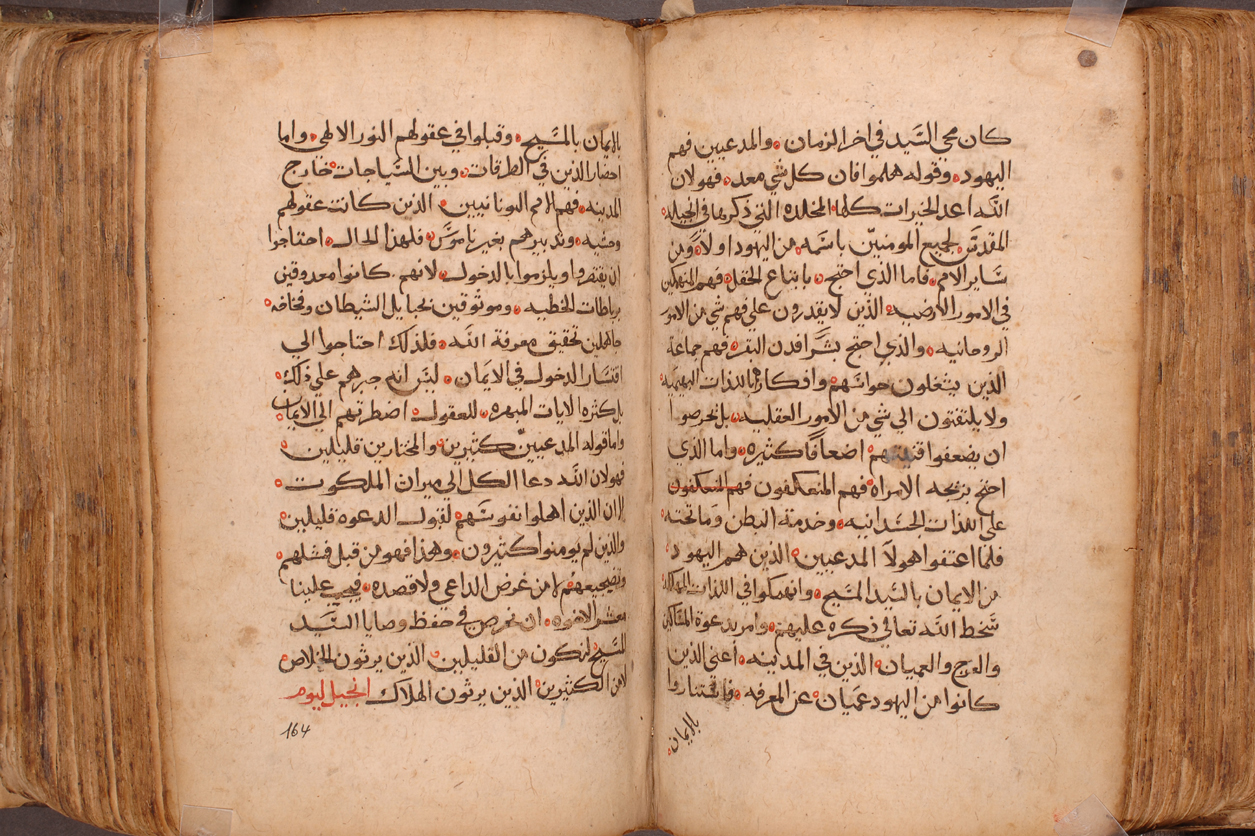 كان مجي السَّيد في اخر الزمان والمدعيين فهم
اليهود وقوله هلموا فان كل شي معد فهولان
الله اعد الخيرات كلها المخلده التي ذكرها في انجيله
المقدس لجميع المومنين باسمه من اليهود اولاً ومن
ساير الامم فاما الذي احتج بابتياع الحقل فهم المنهمكين
في الامور الارضيه الذين لا يقدرون علي فهم شي من الامور
الروحانيه والذي احتج بشرا فدن البقر فهم جماعة
الذين يشغلون حواسهم وافكارهم باللذات البهيميه
ولا يلتفتون الي شي من الامور العقليه بل يحرصوا
ان يضعفوا قنيتهم اضعافًا كثيره واما الذي
احتج بزيجه الامراه فهم المنعكفون
علي اللذات الجسدانيه وخدمة البطن وما تحته
فلما اعتفوا هولا المدعيين الذين هم اليهود
من الايمان بالسَّيد المسَّيح وانهمكوا في اللذات المهلكه
سَّخط الله تعالي ذكره عليهم وامر بدعوة المسَّاكين
والعرج والعميان الذين في المدينه أعني الذين
كانوا من اليهود عميان عن المعرفه فاقتنادوا
بالايمان
بالايمان بالمسَّيح وقبلوا في عقولهم النور الالهي واما
احضار الذين في الطرقات وبين السَّياجات خارج
المدينه فهم الامم اليونانيين الذين كانت عقولهم
وحشيه وتدبيرهم بغير ناموسَّ فلهذا الحال احتاجوا
ان يقتفروا ويلزموا بالدخول لانهم كانوا معدوقين
برباطات الخطيه وموثوقين بحبايل الشيطان ومخافه
جاهلين تحقيق معرفة الله فلذلك احتاجوا الي
اقتسَّار الدخول في الايمان ليسَّ انه جبرهم علي ذلك
بل كثرة الايات المبهره للعقول اضطرتهم الي الايمان
واما قوله المدعيين كثيرين والمختارين قليلين
فهولان الله دعا الكل الي ميراث الملكوت
الا ان الذين اهلوا نفوسَّهم لقبول الدعوه قليلين
والذين لم يومنوا كثيرون وهذا فهو من قبل فشلهم
وتضجيعهم لا من غرض الداعي ولا قصده فيجب علينا
معشر الاخوه ان نحرص في حفظ وصايا السَّيد
المسَّيح لنكون من القليلين الذين يرثون الخلاص
لا من الكثيرين الذين يرثون الهلاك انجيل ليوم
164